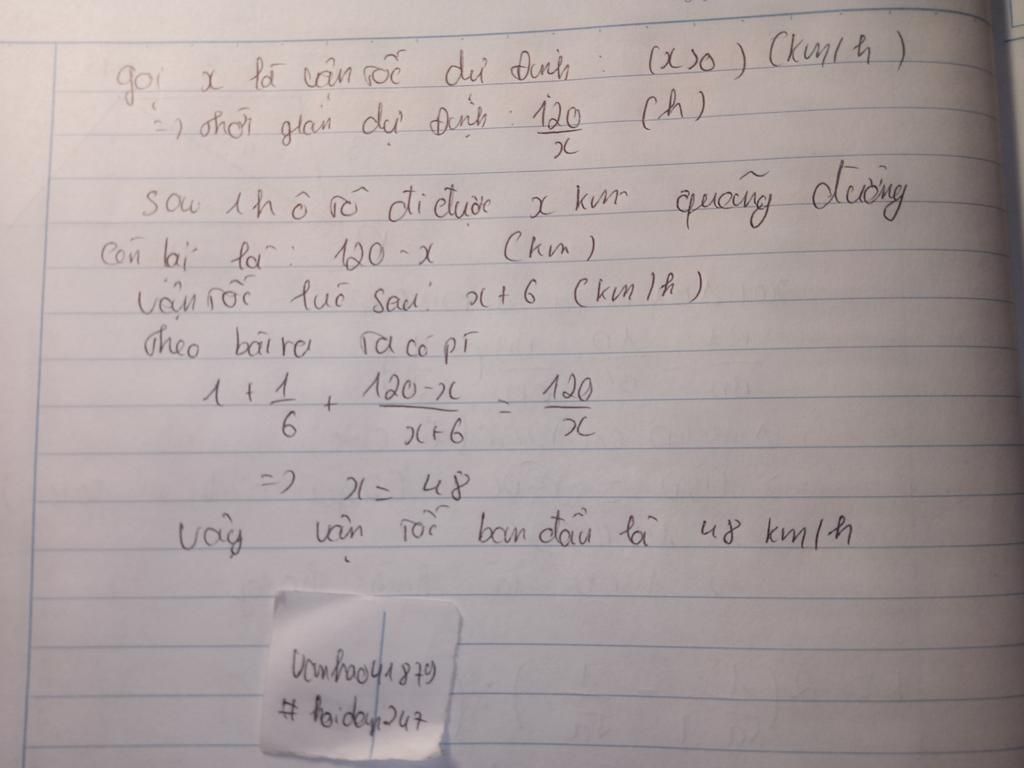 gọi x là vận tốc dự định : (x>0) (km/h)
=> thời gian dự định : 120/x (h)
sau 1h ô tô đi được x km quãng đường
còn lại là : 120-x (km)
vận tốc lúc sau : x+6 (km/h)
theo bài ra ta có pt
1 + 1/6 + 120-x/x+6 = 120/x
=> x = 48
vậy vận tốc ban đầu là 48 km/h
vanhao41879
# hoidap247